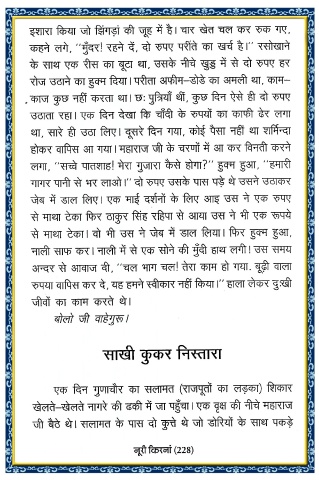 इशारा किया जो झिंगड़ां की जूह में है। चार खेत चल कर रुक गए,
कहने लगे, “मुँदर! रहने दें, दो रुपए परीते का खर्च है।” रसोखाने
के साथ एक रीस का बूटा था, उसके नीचे खुड्ड में से दो रुपए हर
रोज उठाने का हुक्म दिया। परीता अफीम-डोडे का अमली था, काम-
काज कुछ नहीं करता था। छः पुत्रियाँ थीं, कुछ दिन ऐसे ही दो रुपए
उठाता रहा। एक दिन देखा कि चाँदी के रुपयों का काफी ढेर लगा
था, सारे ही उठा लिए। दूसरे दिन गया, कोई पैसा नहीं था शर्मिन्दा
होकर वापिस आ गया। महाराज जी के चरणों में आ कर विनती करने
लगा, “सच्चे पातशाह! मेरा गुजारा कैसे होगा?” हुक्म हुआ, “हमारी
गागर पानी से भर लाओ।” दो रुपए उसके पास पड़े थे उसने उठाकर
जेब में डाल लिए। एक माई दर्शनों के लिए आइ उस ने एक रुपए
से माथा टेका फिर ठाकुर सिंह रहिपा से आया उस ने भी एक रूपये
से माथा टेका। वो भी उस ने जेब में डाल लिया। फिर हुक्म हुआ,
नाली साफ कर। नाली में से एक सोने की मुँदी हाथ लगी! उस समय
अन्दर से आवाज दी, “चल भाग चल! तेरा काम हो गया. बूढ़ी वाला
रुपया वापिस कर दे, यह हमने स्वीकार नहीं किया।” हाला लेकर दुःखी
जीवों का काम करते थे।
बोलो जी वाहेगुरू।
साखी कुकर निस्तारा
एक दिन गुणाचौर का सलामत (राजपूतों का लड़का) शिकार
खेलते-खेलते नागरे की ढकी में जा पहुँचा। एक वृक्ष की नीचे महाराज
जी बैठे थे। सलामत के पास दो कुत्ते थे जो डोरियों के साथ पकड़े
नूरी किरनां (228)